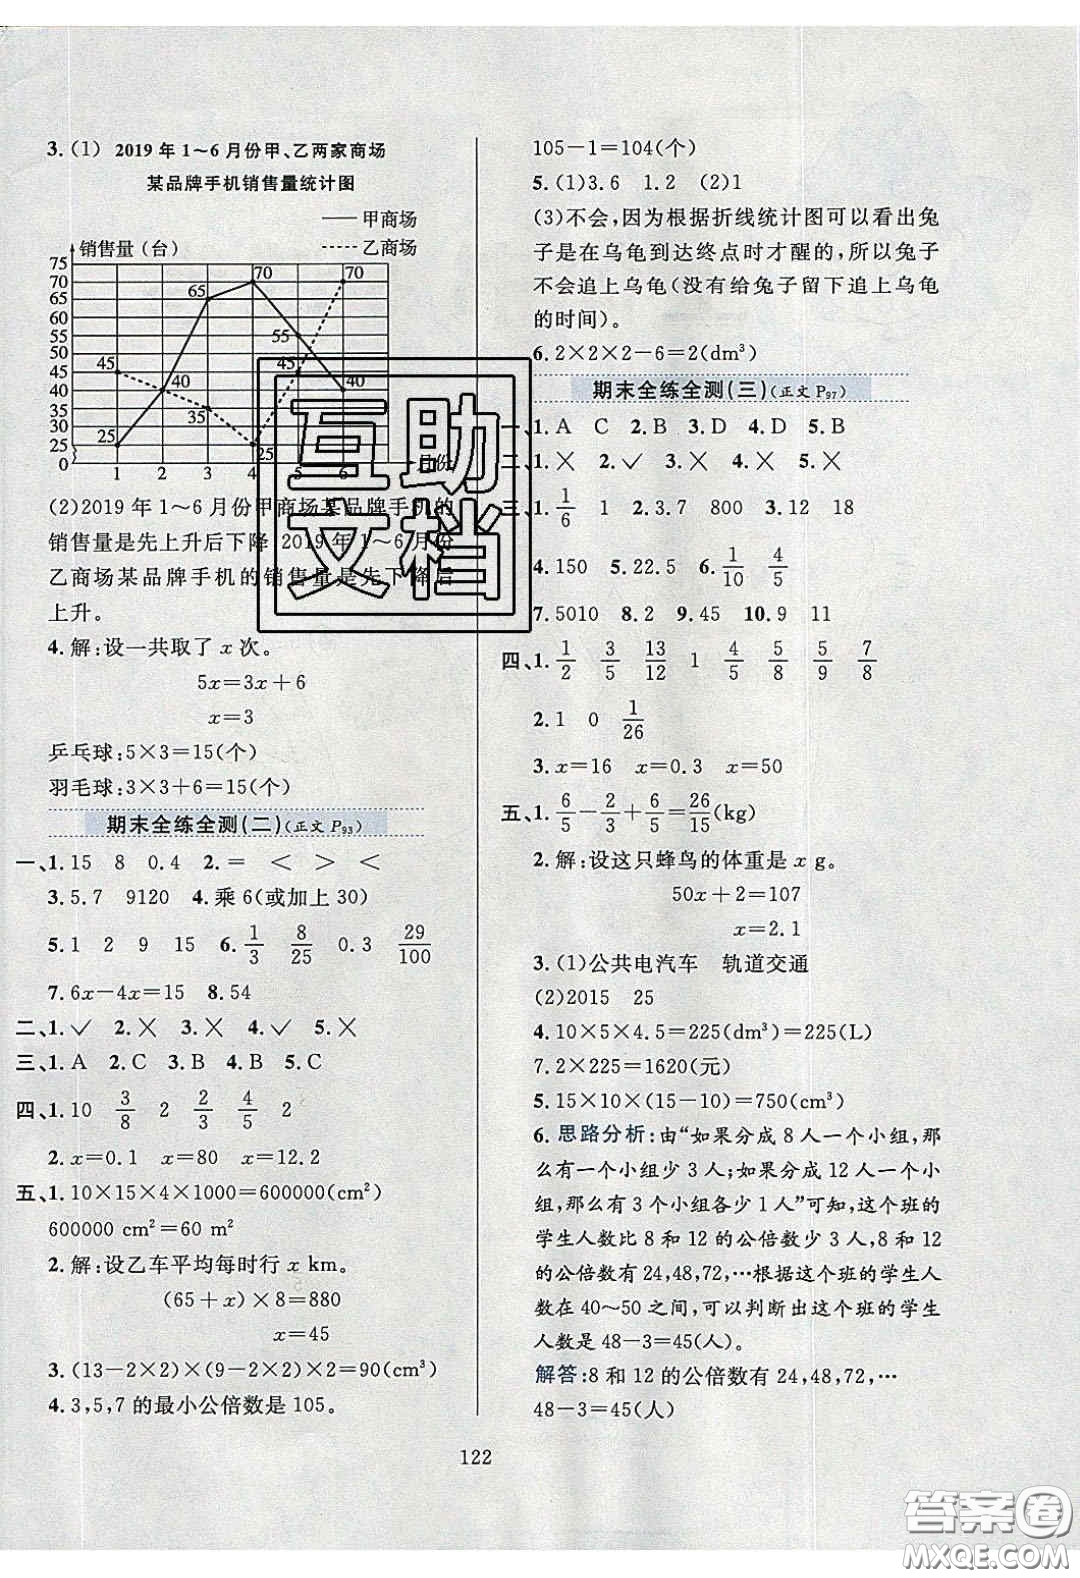 3.(1) 2019年1～6月份甲、乙两家商场
某品牌手机销售量统计图
—— 甲商场
------ 乙商场
销售量(台)
75
70
65
60
55
50
45
40
35
30
25
20
0
45
25
65
40
35
70
25
55
45
70
40
1 2 3 4 5 6 月份
(2)2019年1～6月份甲商场某品牌手机的
销售量是先上升后下降 2019年1～6月份
乙商场某品牌手机的销售量是先下降后
上升。
4.解:设一共取了x次。
5x=3x+6
x=3
乒乓球:5×3=15(个)
羽毛球:3×3+6=15(个)
期末全练全测(二)(正文 P93)
一、1.15 8 0.4 2.= < > <
3.5.7 9120 4.乘6(或加上30)
5.1 2 9 15 6.1/3 8/25 0.3 29/100
7.6x-4x=15 8.54
二、1.✓ 2.× 3.× 4.✓ 5.×
三、1.A 2.C 3.B 4.B 5.C
四、1.10 3/8 2 2/3 4/5 2
2.x=0.1 x=80 x=12.2
五、1.10×15×4×1000=600000(cm²)
600000 cm²=60 m²
2.解:设乙车平均每时行x km。
(65+x)×8=880
x=45
3.(13-2×2)×(9-2×2)×2=90(cm³)
4.3,5,7的最小公倍数是105。
105-1=104(个)
5.(1)3.6 1.2 (2)1
(3)不会,因为根据折线统计图可以看出兔
子是在乌龟到达终点时才醒的,所以兔子
不会追上乌龟(没有给兔子留下追上乌龟
的时间)。
6.2×2×2-6=2(dm³)
期末全练全测(三)(正文 P97)
一、1.A C 2.B 3.D 4.D 5.B
二、1.× 2.✓ 3.× 4.× 5.×
三、1.1/6 1 2.3.7 800 3.12 18
4.150 5.22.5 6.1/10 4/5
7.5010 8.2 9.45 10.9 11
四、1.1/2 3/5 13/12 1 4/5 5/8 5/9 7/8
2.1 0 1/26
3.x=16 x=0.3 x=50
五、1.6/5-2/3+6/5=26/15(kg)
2.解:设这只蜂鸟的体重是x g。
50x+2=107
x=2.1
3.(1)公共电汽车 轨道交通
(2)2015 25
4.10×5×4.5=225(dm³)=225(L)
7.2×225=1620(元)
5.15×10×(15-10)=750(cm³)
6.思路分析:由“如果分成8人一个小组,那
么有一个小组少3人;如果分成12人一个小
组,那么有3个小组各少1人”可知,这个班的
学生人数比8和12的公倍数少3人,8和12
的公倍数有24,48,72,…根据这个班的学生人
数在40～50之间,可以判断出这个班的学生
人数是48-3=45(人)。
解答:8和12的公倍数有24,48,72,…
48-3=45(人)
122
互助
文档
答案圈
MXQE.COM